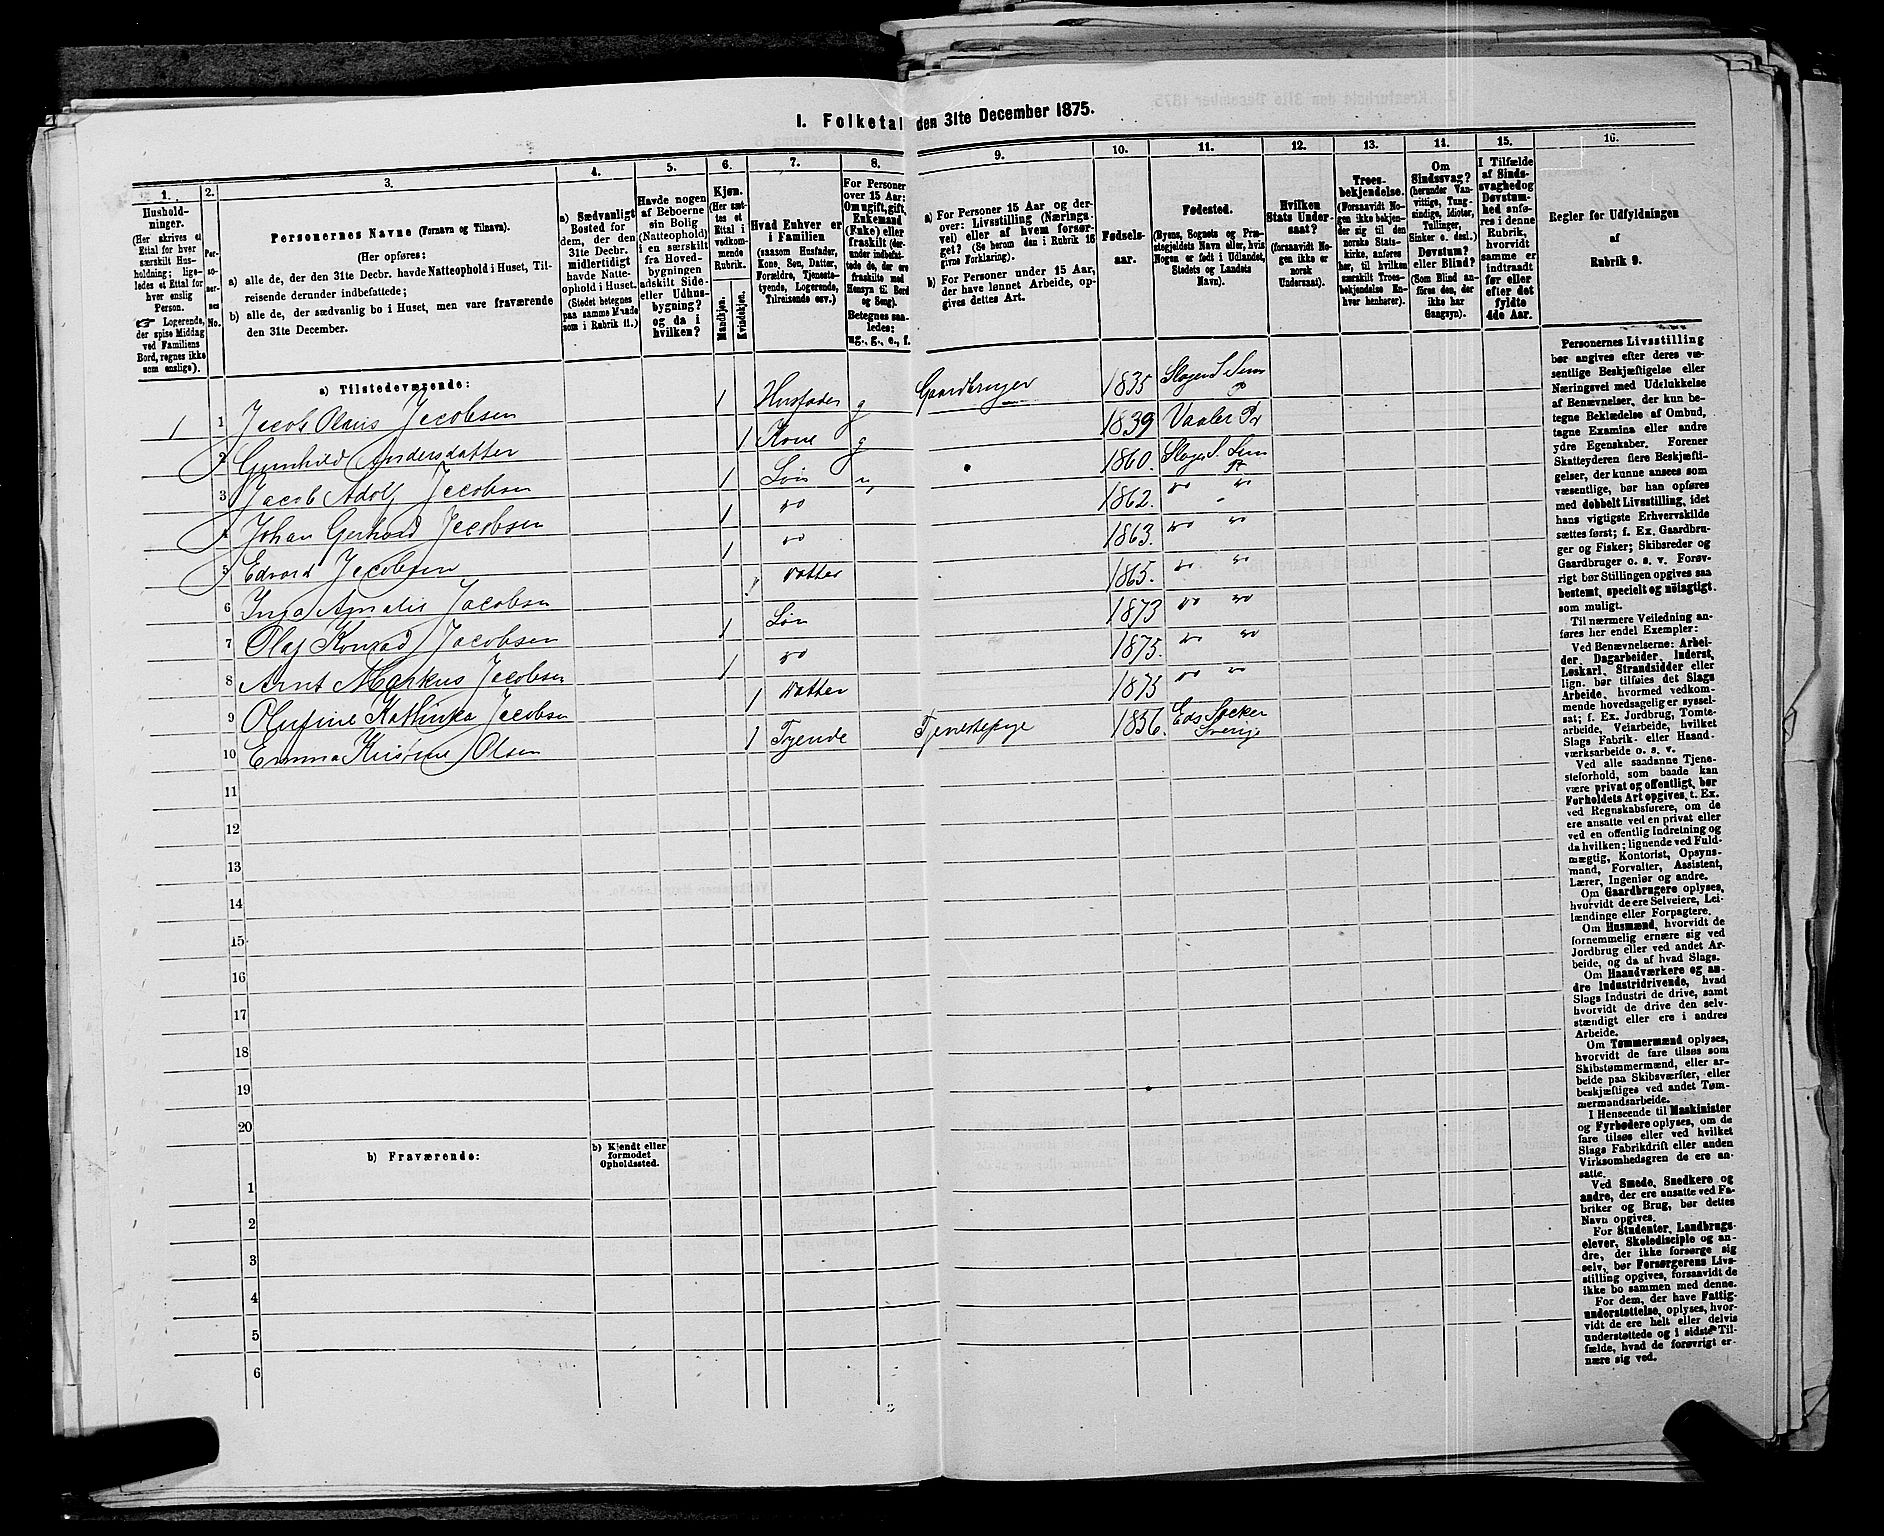 I. Folketal den 31te December 1875.
1.
2.
3.
4.
5.
6.
7.
8.
9.
10.
11.
12.
13.
14.
15.
16.
Hushold-
ninger.
(Her skrives et
Ettal for hver
særskilt Hus-
holdning; lige-
ledes et Ettal for
hver enslig
Person.
☞ Logerende,
der spise Middag
ved Familiens
Bord, regnes ikke
som enslige).
Per-
so-
ner-
nes
No.
Personernes Navne (Fornavn og Tilnavn).
(Her opføres:
a) alle de, der den 31te Decbr. havde Natteophold i Huset, Til-
reisende derunder indbefattede;
b) alle de, der sædvanlig bo i Huset, men vare fraværende
den 31te December.
a) Sædvanligt
Bosted for
dem, der den
31te Decbr.
midlertidigt
havde Natte-
ophold i Huset.
(Stedet betegnes
paa samme Maade
som i Rubrik 11.)
Havde nogen
af Beboerne
sin Bolig
(Natteophold)
i en særskilt
fra Hoved-
bygningen
adskilt Side-
eller Udhus-
bygning?
og da i
hvilken?
Kjøn.
(Her sæt-
tes et
Ettal i
vedkom-
mende
Rubrik.
Mandkjøn.
Kvindekjøn.
Hvad Enhver er
i Familien
(saasom Husfader,
Kone, Søn, Datter,
Forældre, Tjeneste-
tyende, Logerende,
Tilreisende osv.)
For Personer
over 15 Aar:
Om ugift, gift,
Enkemand
(Enke) eller
fraskilt (der-
under indbefat-
tede de, der ere
fraskilte med
Hensyn til Bord
og Seng).
Betegnes saa-
ledes:
ug., g., e., f.
a) For Personer 15 Aar og der-
over: Livsstilling (Nærings-
vei) eller af hvem forsør-
get? (Se herom den i Rubrik 16
givne Forklaring).
b) For Personer under 15 Aar,
der have lønnet Arbeide, op-
gives dettes Art.
Fødsels-
aar.
Fødested.
(Byens, Sognets og Præ-
stegjeldets Navn eller, hvis
Nogen er født i Udlandet,
Stedets og Landets
Navn).
Hvilken
Stats Under-
saat?
(forsaavidt No-
gen ikke er
norsk
Undersaat).
Troes-
bekjendelse.
(Forsaavidt No-
gen ikke bekjen-
der sig til den
norske Stats-
kirke, anføres
her, til hvilken
særskilt Troes-
bekjendelse En-
hver henhører).
Om
Sindssvag?
(herunder Van-
vittige, Tung-
sindige, Idioter,
Tullinger,
Sinker o. desl.)
Døvstum?
eller Blind?
(Som Blind an-
føres den, der
ikke har
Gangsyn).
I Tilfælde
af Sinds-
svaghed og
Døvstum-
hed anfø-
res i denne
Rubrik,
hvorvidt
samme er
indtraadt
før eller
efter det
fyldte
4de Aar.
Regler for Udfyldningen
af
Rubrik 9.
a) Tilstedeværende:
1 1 Jacob Olaus Jacobsen 1 Husfader g Gaardbruger 1835 Slagen S. Sem P
2 Gunhild Andersdatter 1 Kone g 1839 Vaaler Pr
3 Jacob Adolf Jacobsen 1 Søn u 1860. Slagen S. Sem Pr
4 Johan Gerhard Jacobsen 1 do 1862. do do
5 Edvard Jacobsen 1 do 1863. do do
6 Inga Amalie Jacobsen 1 Datter 1865. do do
7 Olaf Konrad Jacobsen 1 Søn 1873 do do
8 Arnt Markus Jacobsen 1 do 1875. do do
9 Olufine Kathinka Jacobsen 1 Datter 1875 do do
10 Emma Kristine Olsen 1 Tyende Tjenestepige 1856. Eds Socken Sverige
11
12
13
14
15
16
17
18
19
20
b) Fraværende:
b) Kjendt eller
formodet
Opholdssted.
1
2
3
4
5
6
Personernes Livsstilling
bør angives efter deres væ-
sentlige Beskjæftigelse eller
Næringsvei med Udelukkelse
af Benævnelser, der kun be-
tegne Beklædelse af Ombud,
tagne Examina eller andre
ydre Egenskaber. Forener
Skatteyderen flere Beskjæfti-
gelser, der kunne ansees som
væsentlige, bør han opføres
med dobbelt Livsstilling, idet
hans vigtigste Erhvervskilde
sættes først; f. Ex. Gaardbru-
ger og Fisker; Skibsreder og
Gaardbruger o. s. v. Forøv-
rigt bør Stillingen opgives saa
bestemt, specielt og nøiagtigt
som muligt.
Til nærmere Veiledning an-
føres her endel Exempler:
Ved Benævnelserne: Arbei-
der, Dagarbeider, Inderst,
Løskarl, Strandsidder eller
lign. bør tilføies det Slags
Arbeide, hvormed vedkom-
mende hovedsagelig er syssel-
sat; f. Ex. Jordbrug, Tomte-
arbeide, Veiarbeide, hvilket
Slags Fabrik- eller Haand-
værksarbeide o. s. v.
Ved alle saadanne Tjene-
steforhold, som baade kan
være privat og offentligt, bør
Forholdets Art opgives, t. Ex.
ved Regnskabsførere, om de
ere ansatte ved en privat eller
ved en offentlig Indretning og
da hvilken; lignende ved Fuld-
mægtig, Kontorist, Opsyns-
mand, Forvalter, Assistent,
Lærer, Ingeniør og andre.
Om Gaardbrugere oplyses,
hvorvidt de ere Selveiere, Lei-
lændinge eller Forpagtere.
Om Husmænd, hvorvidt de
fornemmelig ernære sig ved
Jordbrug eller ved andet Ar-
beide, og da af hvad Slags.
Om Haandværkere og an-
dre Industridrivende, hvad
Slags Industri de drive, samt
hvorvidt de drive den selv-
stændigt eller ere i andres
Arbeide.
Om Tømmermænd oplyses,
hvorvidt de fare tilsøs som
Skibstømmermænd, eller ar-
beide paa Skibsværfter, eller
beskjæftiges ved andet Tøm-
mermandsarbeide.
I Henseende til Maskinister
og Fyrbødere oplyses, om de
fare tilsøs eller ved hvilket
Slags Fabrikdrift eller anden
Virksomhedsgren de ere an-
satte.
Ved Smede, Snedkere og
andre, der ere ansatte ved Fa-
briker og Brug, bør dettes
Navn opgives.
For Studenter, Landbrugs-
elever, Skoledisciple og an-
dre, der ikke forsørge sig
selv, bør Forsørgerens Livs-
stilling opgives, forsaavidt de
ikke bo sammen med denne.
For dem, der have Fattig-
understøttelse, oplyses, hvor-
vidt de ere helt eller delvis
understøttede og i sidste Til-
fælde, hvad de forøvrigt er-
nære sig ved.